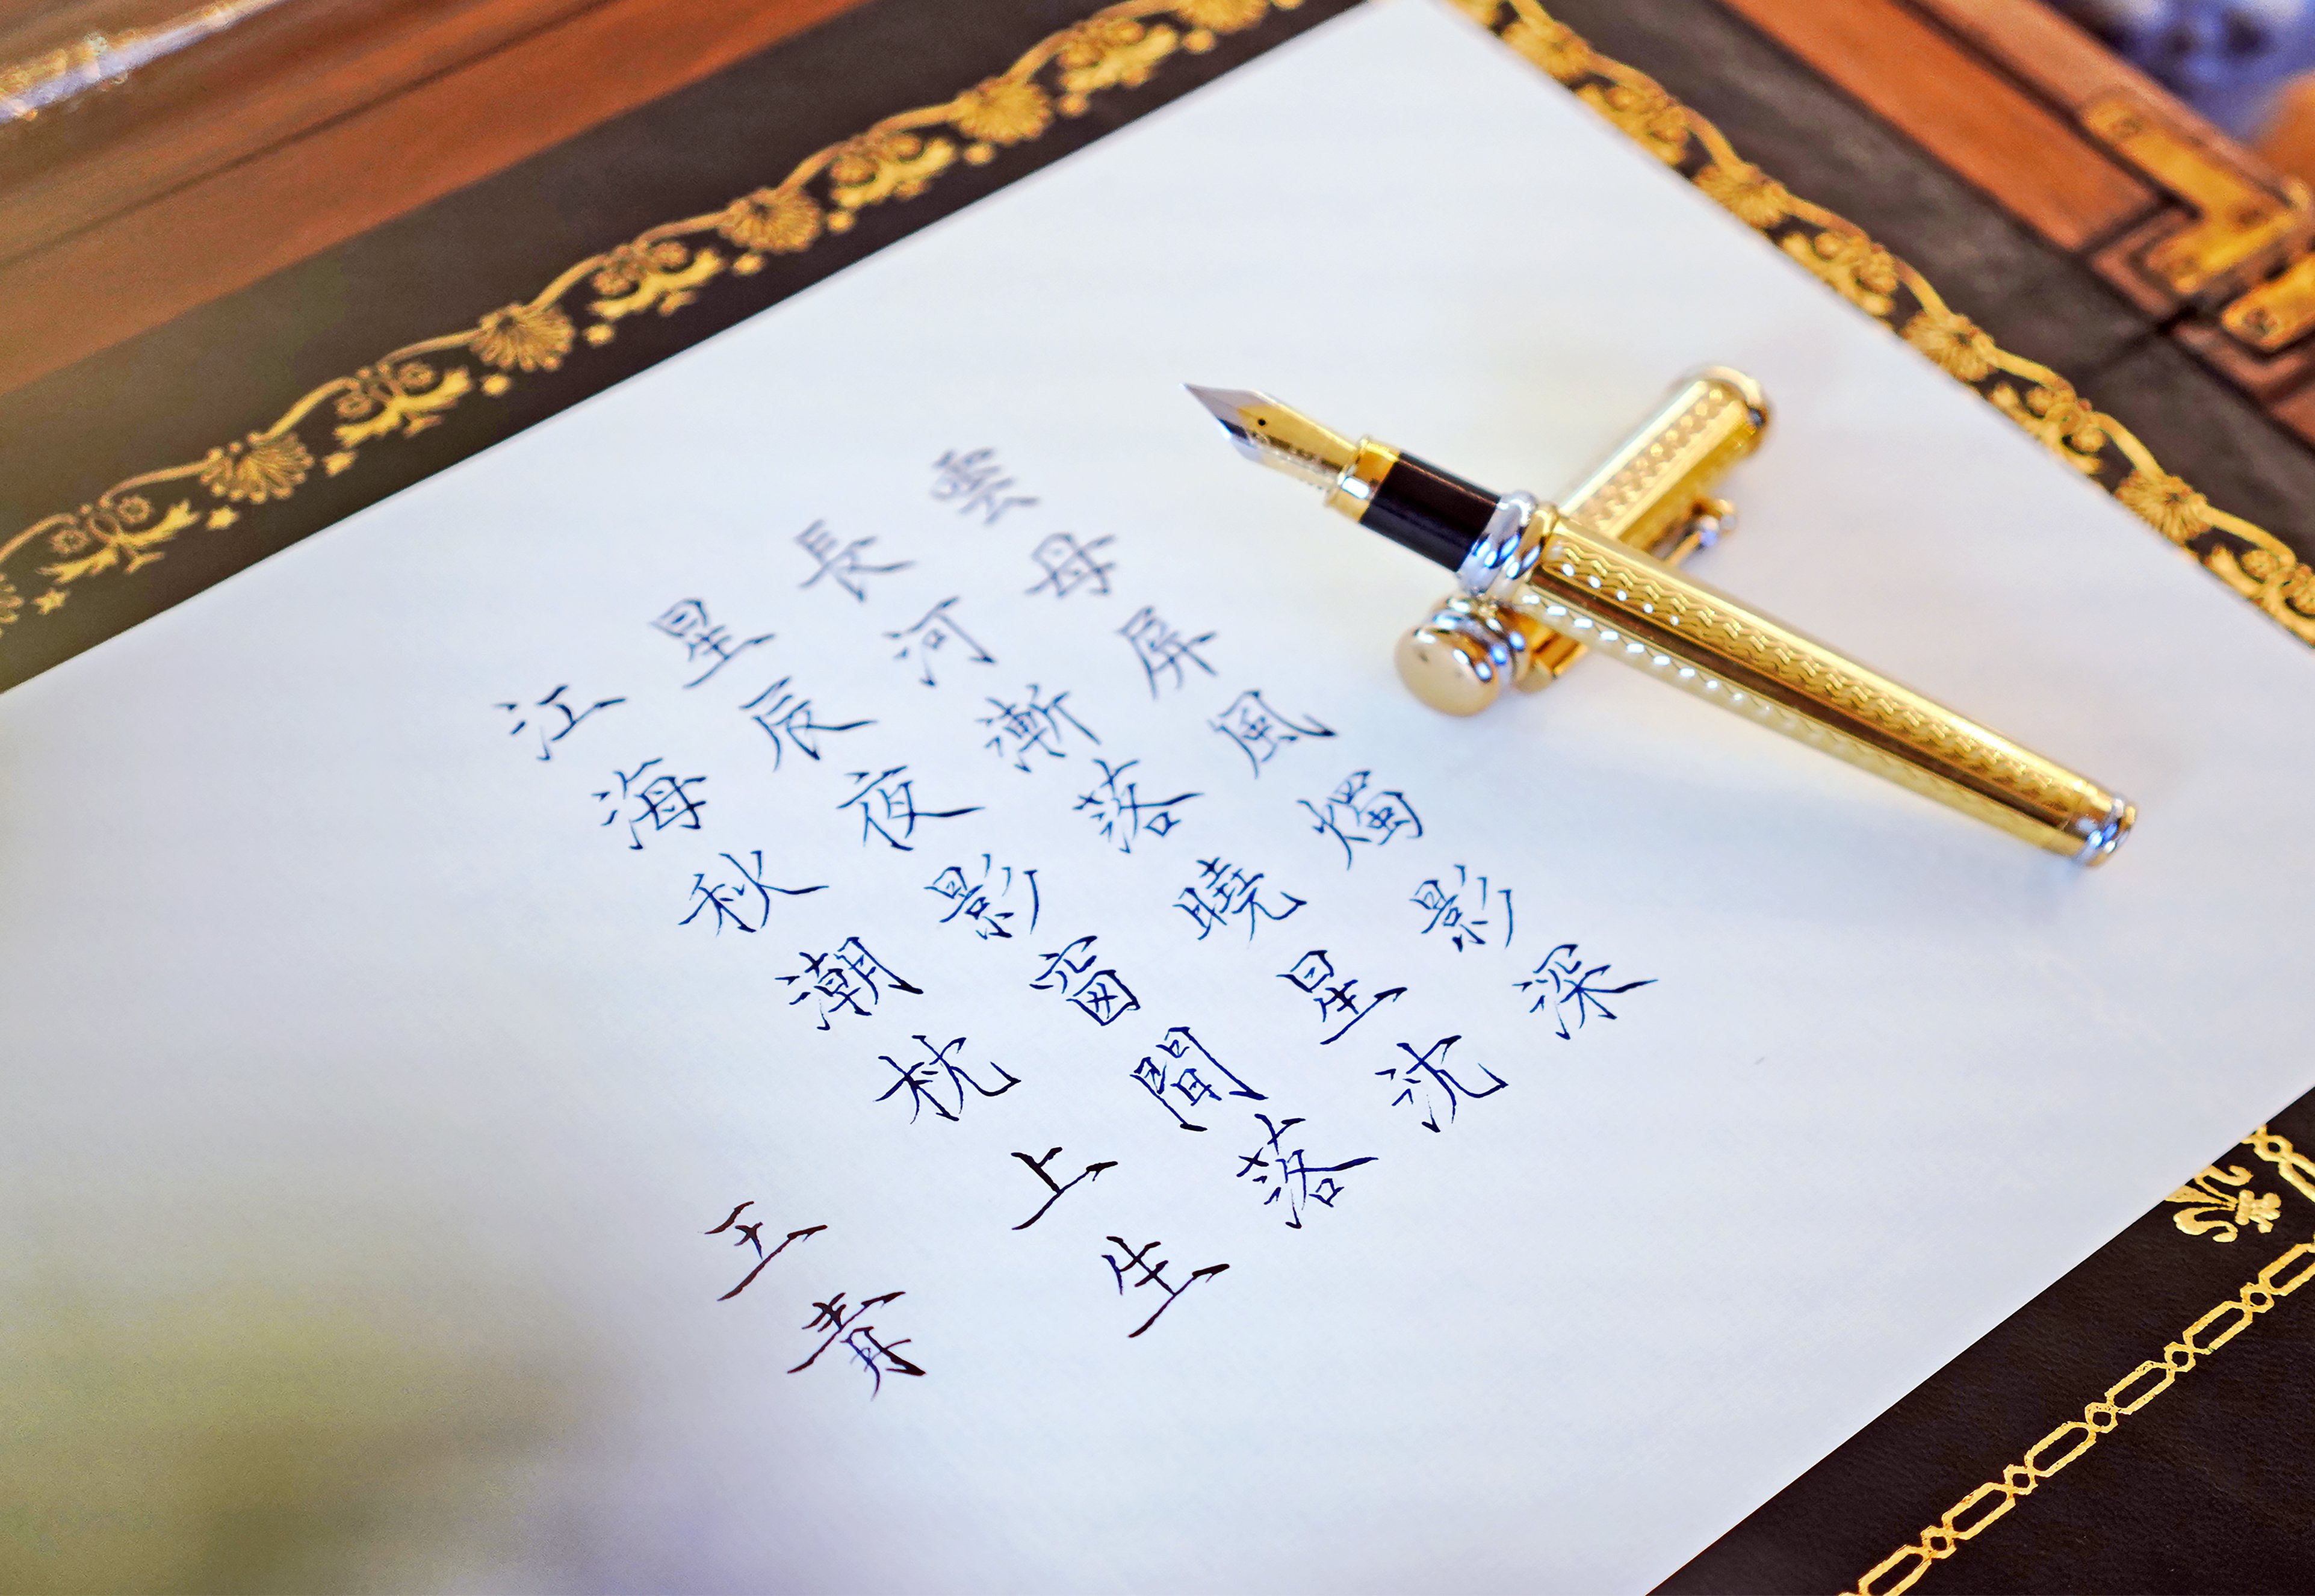 雲母屏風燭影深
長河漸落曉星沈
星辰夜影窗間落
江海秋潮枕上生
王青